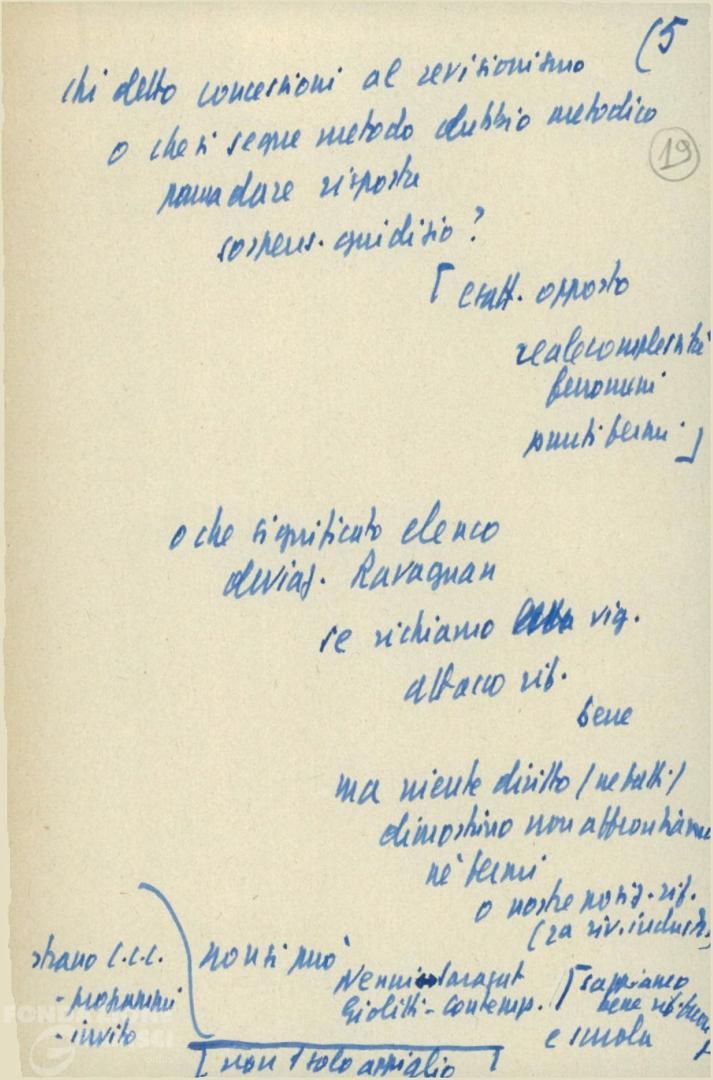 (5
19
chi detto concessioni al revisionismo
o che si segue metodo dubbio metodico
senza dare risposte
sospens. giudizio?
[esatt. opposto
reale complessità
fenomeni
punti fermi]
o che significato elenco
deviaz. Ravagnan
se richiamo vig.
attacco rif.
bene
ma niente diritto (nè fatti)
dimostrino non affrontiamo
nè fermi
o nostre posiz. rif.
(2a riv. industr.
strano C.C.C.
- proponimi
- invito
non si può
Nenni Saragat
Giolitti - Contemp.
[sappiamo
bene
e smola
[non solo appiglio]
FONDAZIONE
GRAMSCI